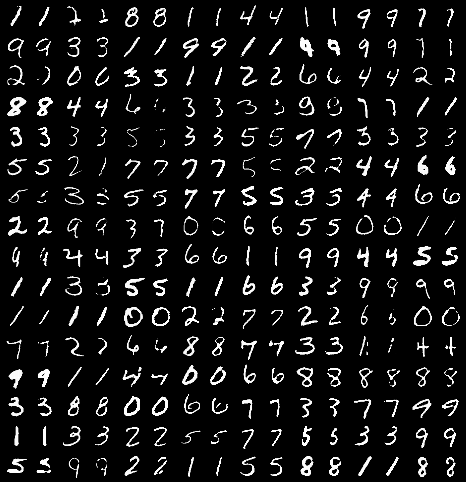 1 1 2 2 8 8 1 1 4 4 1 1 9 9 7 7
9 9 3 3 1 1 9 9 1 1 9 9 9 9 1 1
2 0 0 3 3 1 1 2 2 6 6 4 4 2 2
8 8 4 4 6 3 3 3 3 9 9 7 7 1 1
3 3 3 3 5 5 3 3 5 5 7 7 3 3 3 3
5 5 2 1 7 7 7 7 5 2 2 4 4 6 6
5 5 3 3 5 5 7 7 5 5 3 3 4 4 6 6
2 2 9 9 3 7 0 0 6 6 5 5 0 0 1 1
9 9 4 4 3 3 6 6 1 1 9 9 4 4 5 5
1 1 3 3 5 5 1 1 6 6 3 3 9 9 9 9
1 1 1 1 0 0 2 2 7 7 2 2 6 5 0 0
7 7 2 2 6 6 8 8 7 7 3 3 1 1 4 4
9 9 1 1 4 4 0 0 6 6 8 8 8 8 8 8
3 3 8 8 0 0 6 6 7 7 3 3 7 7 9 9
1 1 3 3 2 2 5 5 7 7 5 5 3 3 9 9
5 5 9 9 2 2 1 1 5 5 8 8 1 1 8 8